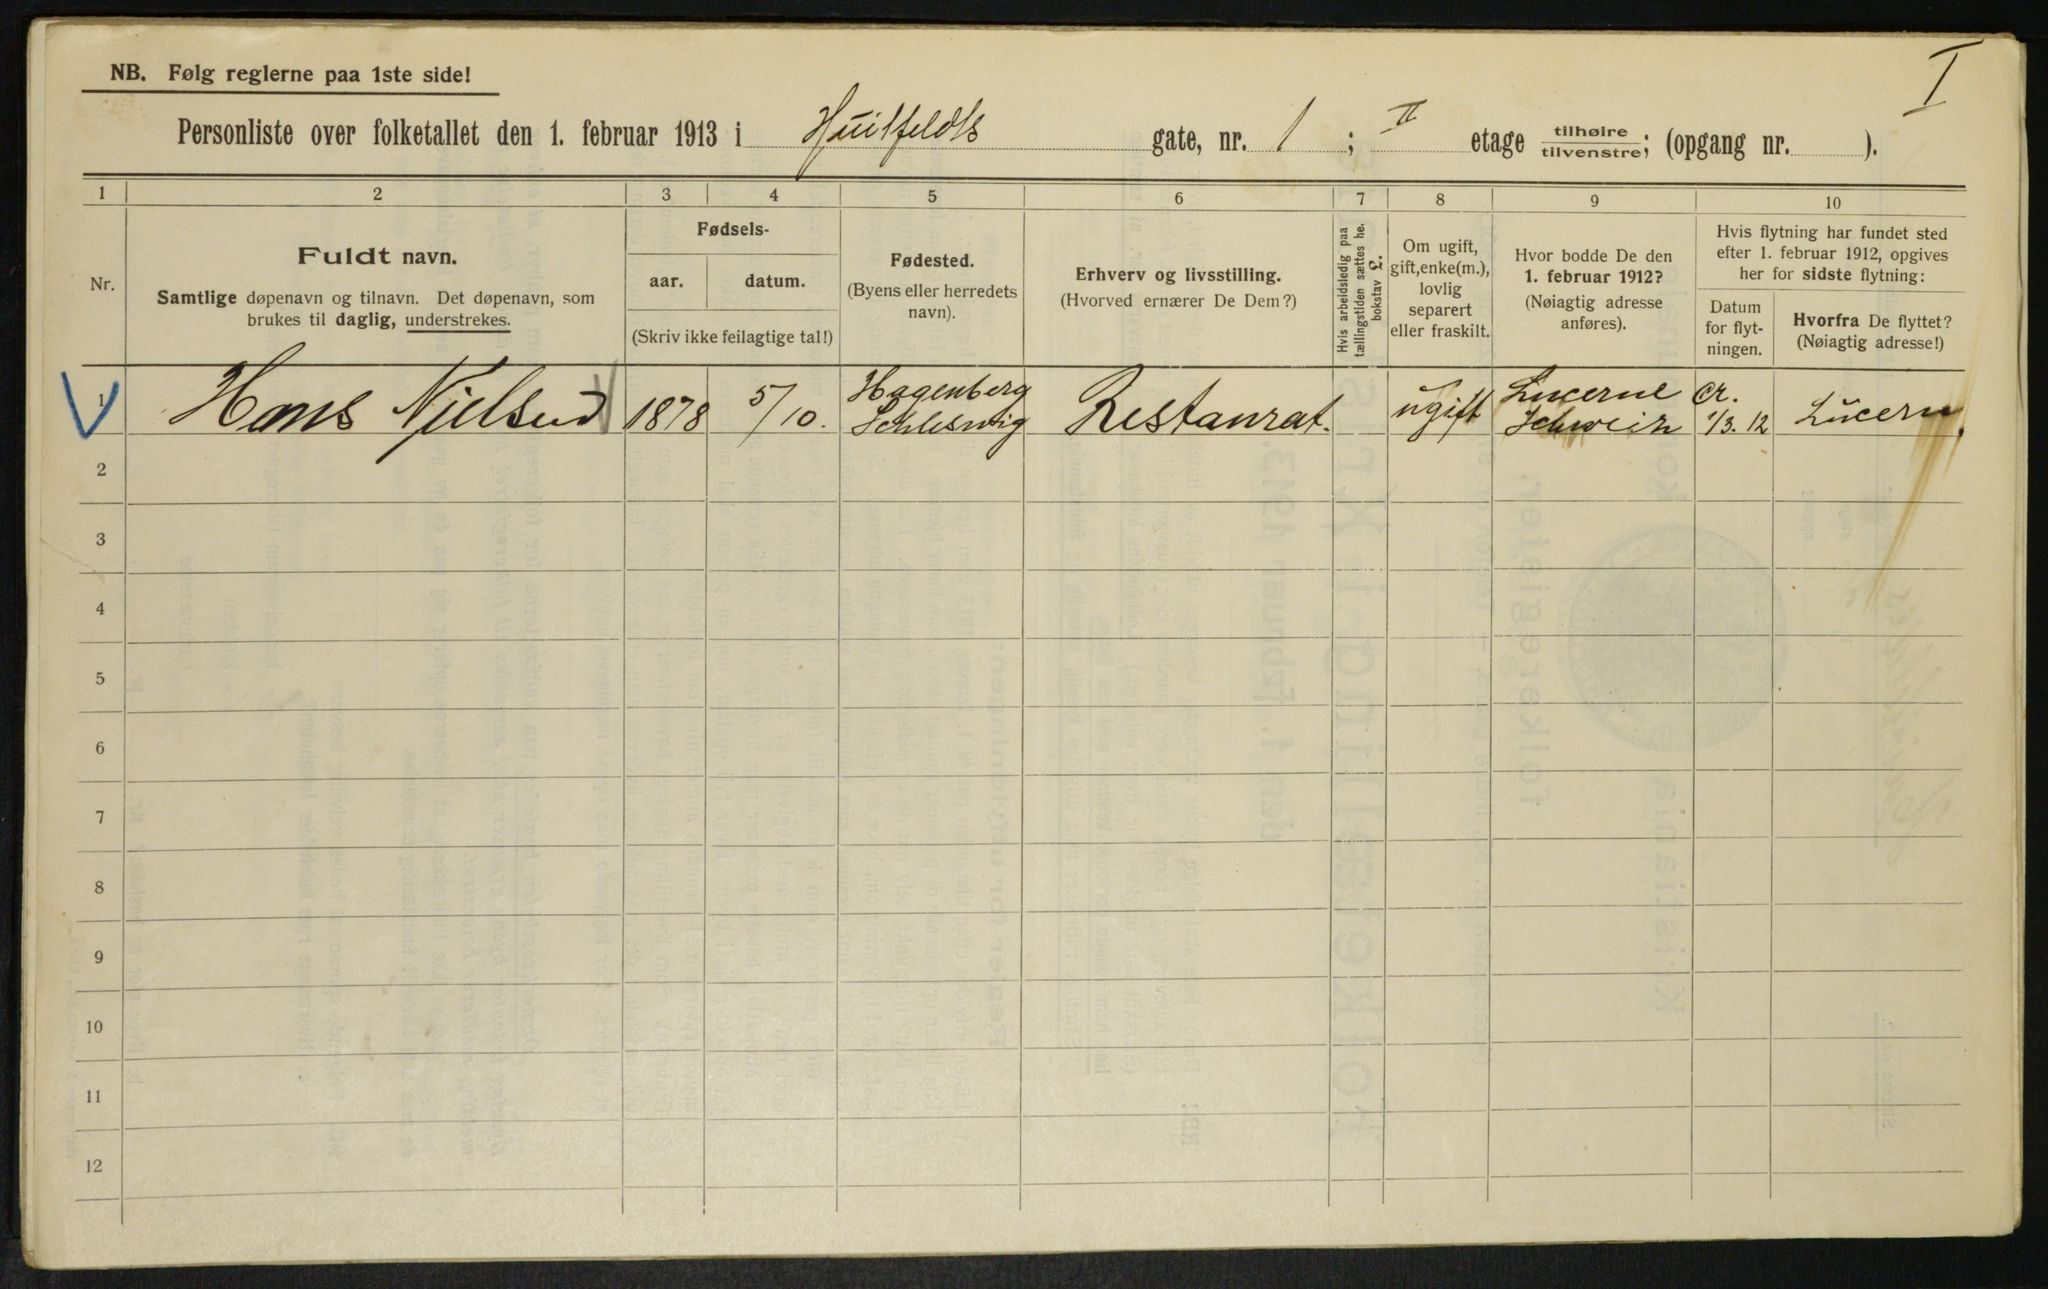 I
NB. Følg reglerne paa 1ste side!
Personliste over folketallet den 1. februar 1913 i Huitfeldts gate, nr. 1 ; II etage tilhøire/tilvenstre; (opgang nr. ).
1 2 3 4 5 6 7 8 9 10
Nr.
Fuldt navn.
Samtlige døpenavn og tilnavn. Det døpenavn, som
brukes til daglig, understrekes.
Fødsels-
aar. datum.
(Skriv ikke feilagtige tal!)
Fødested.
(Byens eller herredets
navn).
Erhverv og livsstilling.
(Hvorved ernærer De Dem?)
Hvis arbeidsledig paa
tællingstiden sættes he.
bokstav L.
Om ugift,
gift, enke(m.),
lovlig
separert
eller fraskilt.
Hvor bodde De den
1. februar 1912?
(Nøiagtig adresse
anføres).
Hvis flytning har fundet sted
efter 1. februar 1912, opgives
her for sidste flytning:
Datum
for flyt-
ningen.
Hvorfra De flyttet?
(Nøiagtig adresse!)
1 Hans Nielsen 1878 5/10. Hagenberg Schleswig Restaurat. ugift Lucerne Schweiz Cr. 1/3. 12 Lucern
2
3
4
5
6
7
8
9
10
11
12